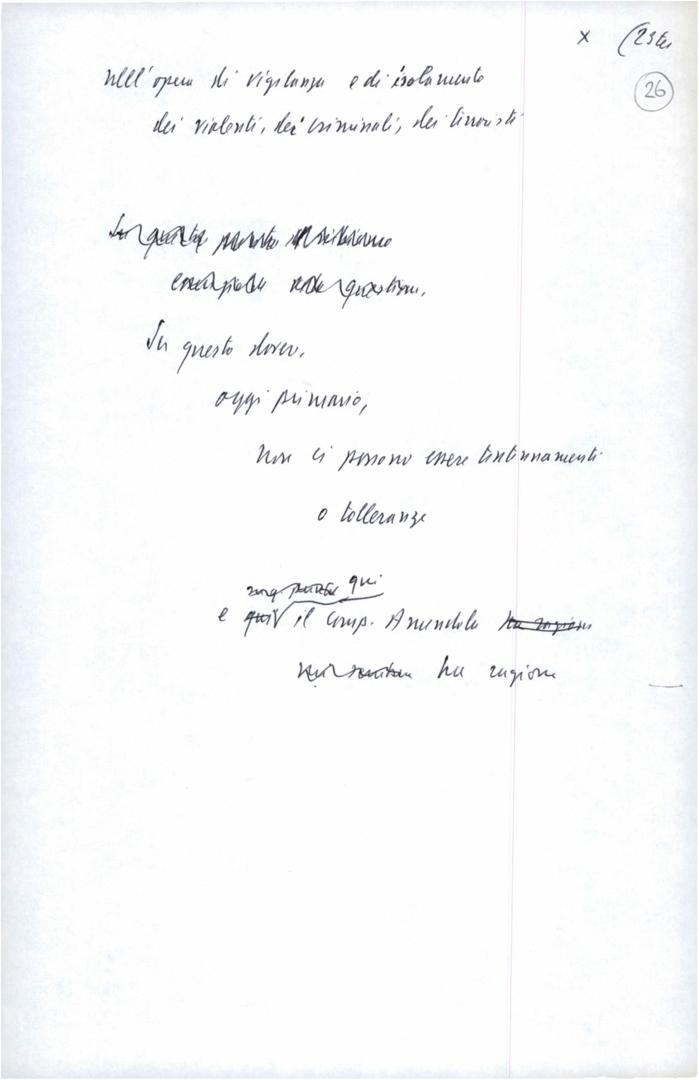 x (23 ter
26
nell'opera di vigilanza e di isolamento
dei violenti, dei criminali, dei terroristi
In questa
questione.
In questo dovere,
oggi primario,
non ci possono essere tentennamenti
o tolleranze
qui
e qui il comp. Amendola ha ragione
ha ragione